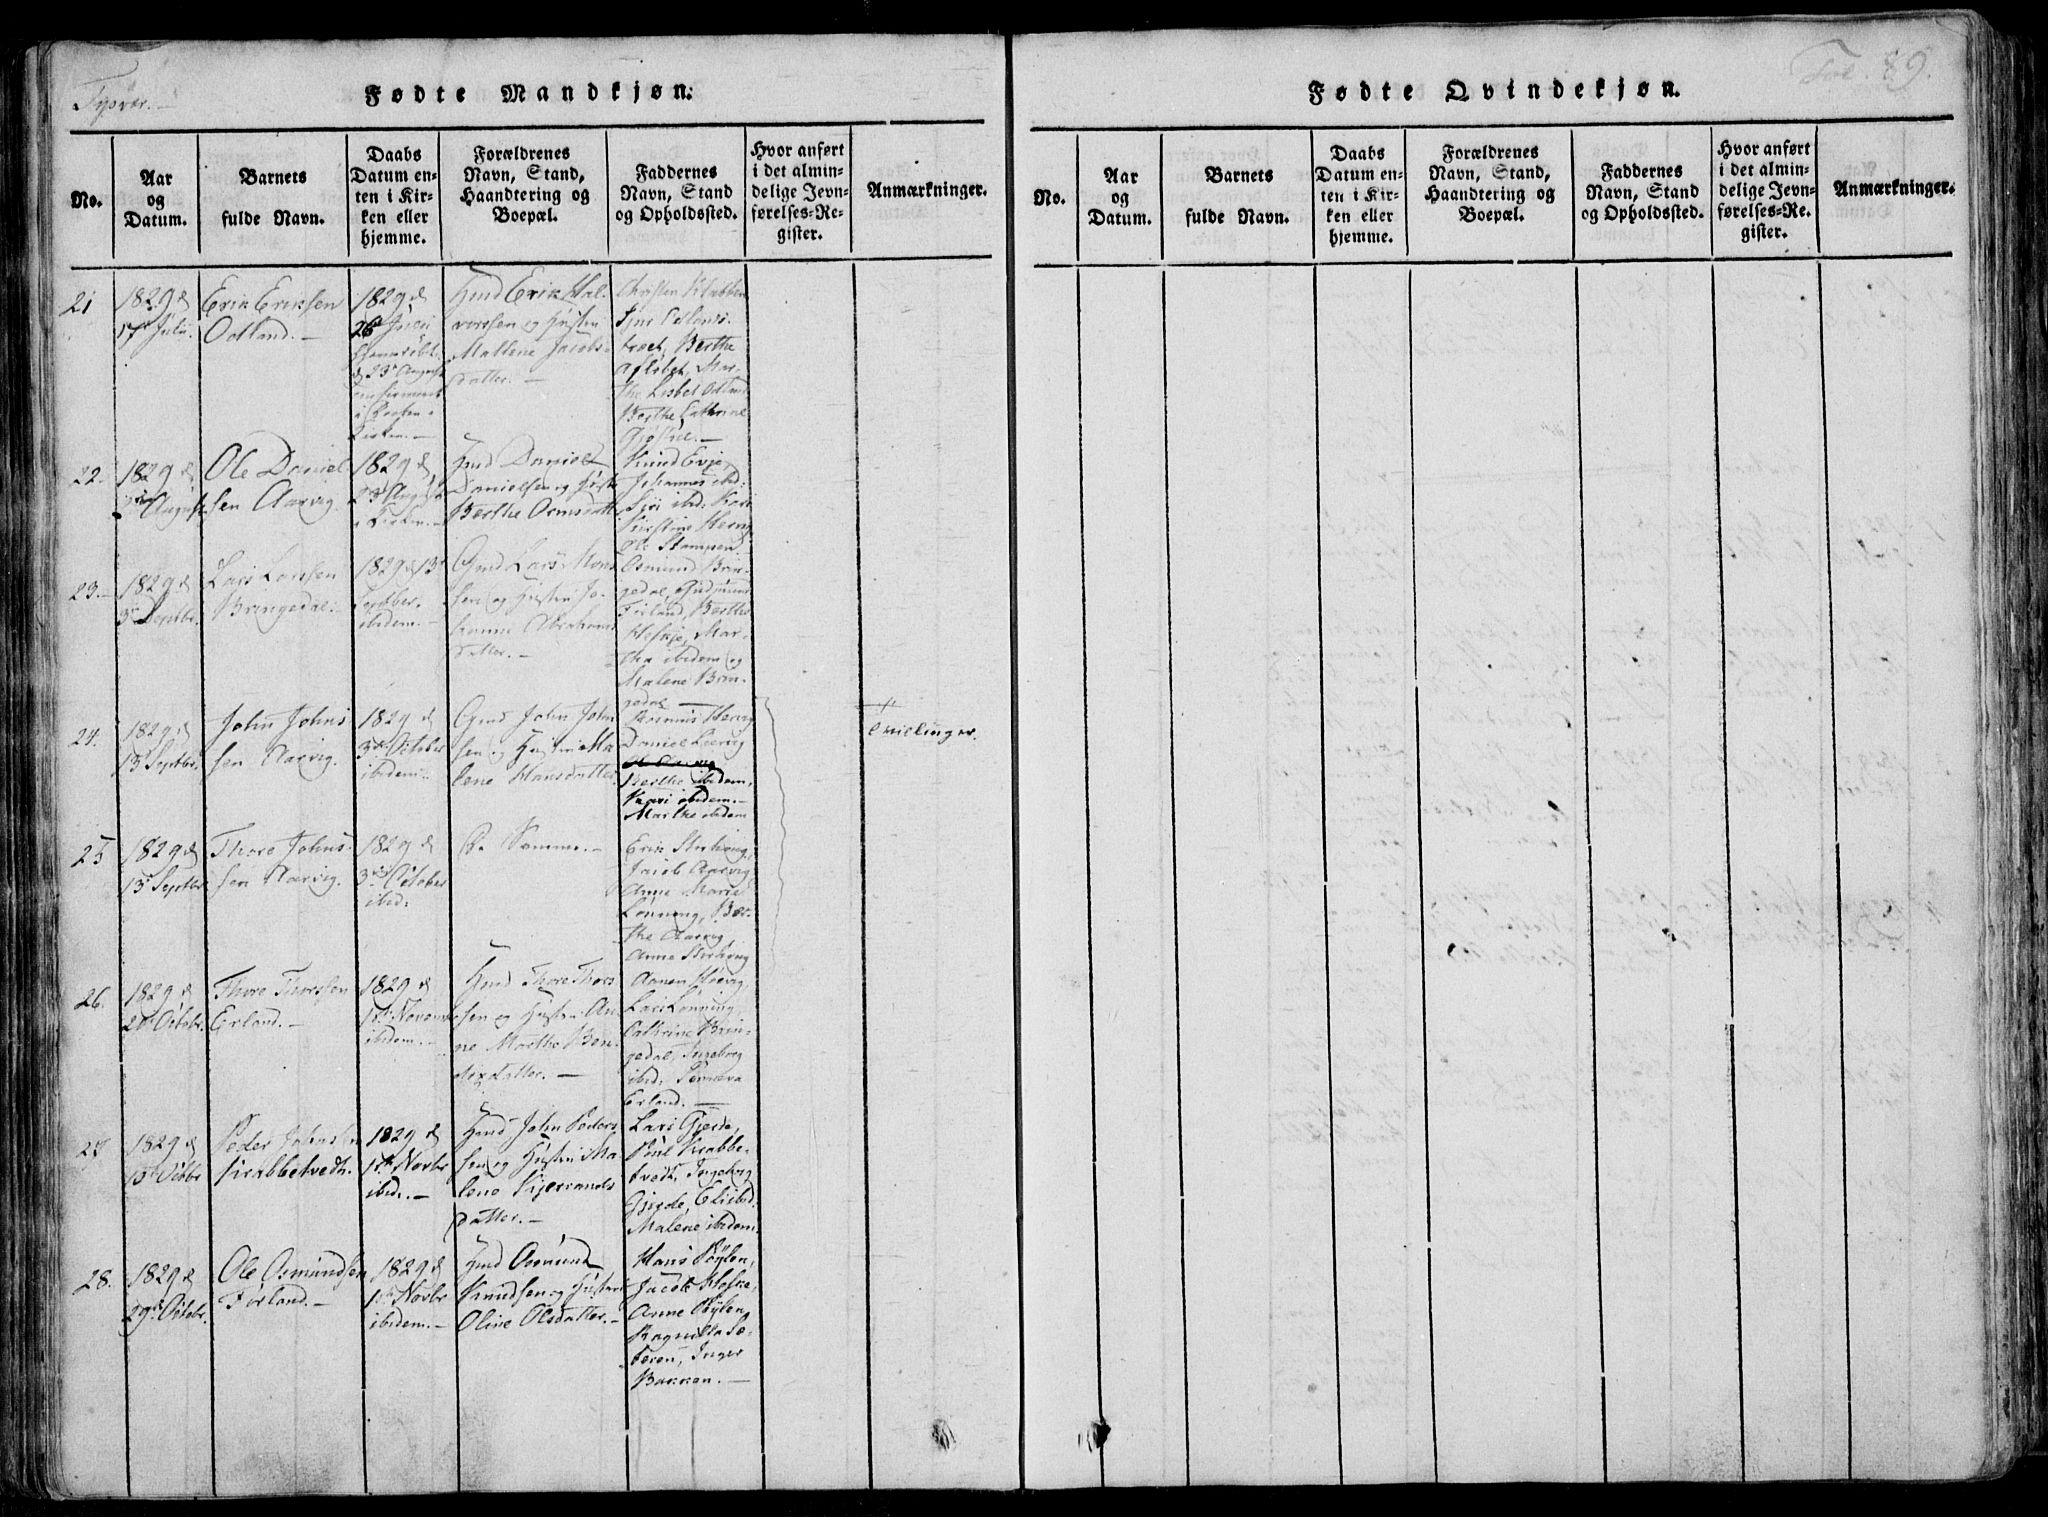 Tysvær.
Fødte Mandkjøn.
No.
Aar og Datum.
Barnets fulde Navn.
Daabs Datum enten i Kirken eller hjemme.
Forældrenes Navn, Stand, Haandtering og Boepæl.
Faddernes Navn, Stand og Opholdssted.
Hvor anført i det almindelige Jevnførelses-Register.
Anmærkninger.
21
1829 d
17 Juli.
Erik Eriksen
Odland.
1829 d
26
d 23 August
i
Kirken.
Gmd Erik Hal-
vorssen og Hustru
Mallene Jacobs-
datter.
Christen Krabbe
Berthe
Mar-
the Lisbet
Berthe Cathrine
22.
1829 d
August
Ole Daniel-
sen Aarvig.
1829 d
23 August
i Kirken.
Gmd Daniel
Danielsen og Hustr
Berthe Ormsdatt
Knud Evje,
Johannes ibd:
Siri ibd: Kari
Kirstine Hervig
Ole Stampen
23.
1829 d
3 Septbr.
Lars Larssen
Bringedal.
1829 d 13
Septber.
ibidem.
Gmd Lars Mons
sen og Hustru Jo-
hanne Abrahams
datter.
Osmund Brin-
gedal, Gudmund
Førland, Berthe
Heskje, Mar-
tha ibidem og
Malene Brin-
gedal
24.
1829 d
13 Septbr.
John Johns
sen Aarvig.
1829 d
3 October
ibidem.
Gmd John John
sen og Hustru Ma
lene Hansdatter
Rasmus Hervig
Daniel
Berthe ibidem,
Kari ibidem.
Marthe ibidem
Tvillinger.
25
1829 d
13 Septbr
Thore Johns-
sen Aarvig.
1829 d
3 October
ibid:
De Samme.
Erik
Jacob Aarvig
Anne Marie
Lønning, Ber-
the Aarvig
Anne
26.
1829 d
20 Octobr.
Thore Thorssen
Erland.
1829 d
1 Novemr
ibidem.
Gmd Thore Thors
sen og Hustru An
ne Marthe Ben-
datter.
Lars Lønning,
Cathrine Brin-
gedal, Ingeborg
ibid:
Erland.
27
1829 d
13 Octbr
Peder Johnsen
Krabbetvedt.
1829 d
1 Novbr
ibid.
Gmd John Peders
sen og Hustru Ma-
lene Kjerrands
datter.
Lars Gjerde,
Poul Krabbe-
tvedt, Ingeborg
Gjerde, Eli ibid.
Malene ibidem.
28.
1829 d
29 Octobr.
Ole Osmundsen
Førland.
1829 d
1 Novbr
ibidem.
Gmd Osmund
Knudsen og Hustru
Oline Olsdatter.
Hans Røylen,
Jacob Heskje,
Anne Røylen
Ragnilla Sæ-
teren, Inger
Bakken.
Fol. 89.
Fødte Qvindekjøn.
No.
Aar og Datum.
Barnets fulde Navn.
Daabs Datum enten i Kirken eller hjemme.
Forældrenes Navn, Stand, Haandtering og Boepæl.
Faddernes Navn, Stand og Opholdssted.
Hvor anført i det almindelige Jevnførelses-Register.
Anmærkninger.